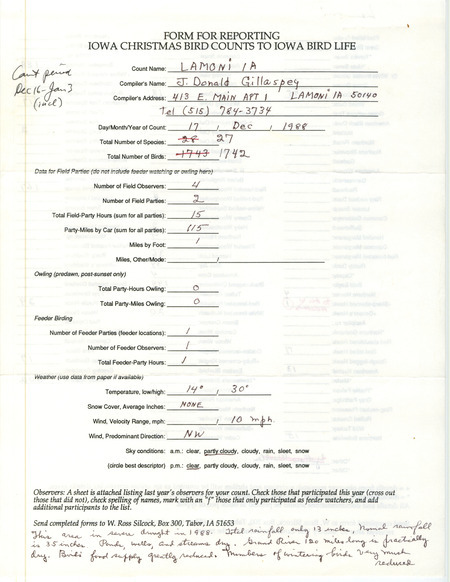 FORM FOR REPORTING
IOWA CHRISTMAS BIRD COUNTS TO IOWA BIRD LIFE
Count period
Dec 16-Jan 3
(incl)
Count Name: LAMONI IA
Compiler's Name: J. Donald Gillaspey
Compiler's Address: 413 E. MAIN APT 1 LAMONI IA 50140
Tel (515) 784-3734
Day/Month/Year of Count: 17, Dec, 1988
Total Number of Species: 28 27
Total Number of Birds: 1743 1742
Data for Field Parties (do not include feeder watching or owling hero)
Number of Field Observers: 4
Number of Field Parties: 2
Total Field-Party Hours (sum for all parties): 15
Party-Miles by Car (sum for all parties): 115
Miles by Foot: 1
Miles, Other/Mode: /
Owling (predawn, post-sunset only)
Total Party-Hours Owling: 0
Total Party-Miles Owling: 0
Feeder Birding
Number of Feeder Parties (feeder locations): 1
Number of Feeder Observers: 1
Total Feeder-Party Hours: 1
Weather (use data from paper if available)
Temperature, low/high: 14° , 30°
Snow Cover, Average Inches: NONE
Wind, Velocity Range, mph: , 10 mph.
Wind, Predominant Direction: NW
Sky conditions: a.m.: clear, partly cloudy, cloudy, rain, sleet, snow
(circle best descriptor) p.m.: clear, partly cloudy, cloudy, rain, sleet, snow
Observers: A sheet is attached listing last year's observers for your count. Check those that participated this year (cross out
those that did not), check spelling of names, mark with an "f" those that only participated as feeder watchers, and add
additional participants to the list.
Send completed forms to W. Ross Silcock, Box 300, Tabor, IA 51653
This area in severe drought in 1988. Total rainfall only 13 inches, Normal rainfall
is 35 inches. Ponds, wells, and streams dry. Grand River 120 miles long is practically
dry. Birds food supply greatly reduced. Numbers of wintering birds very much
reduced